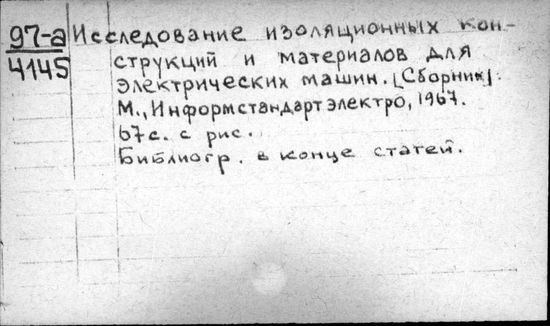 97-а
4145
Исследование изоляционных кон-
струкций и материалов для
электрических машин. [Сборник].
М., Информстандартэлектро, 1967.
67с. с рис.
Библиогр. в конце статей.